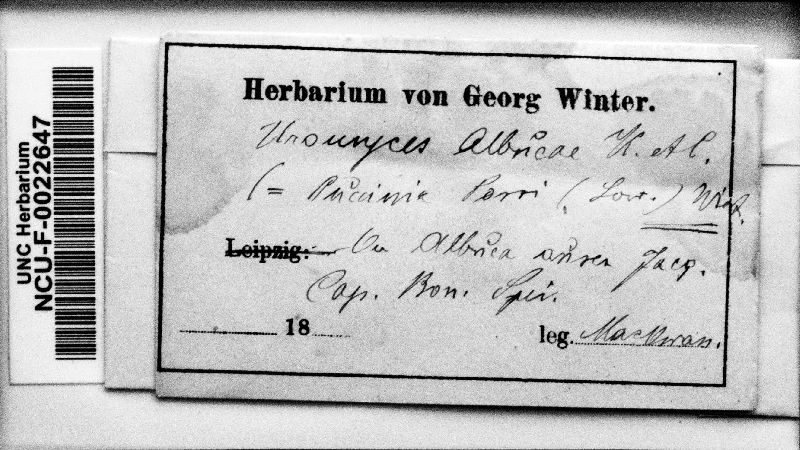 UNC Herbarium
NCU-F-0022647
Herbarium von Georg Winter.
Uromyces Albucae K. et C.
(= Puccinia (Lour.) Wint.
Leipzig: On Albuca aurea Jacq.
Cap. Bon. Spei.
18
leg. MacOwan.